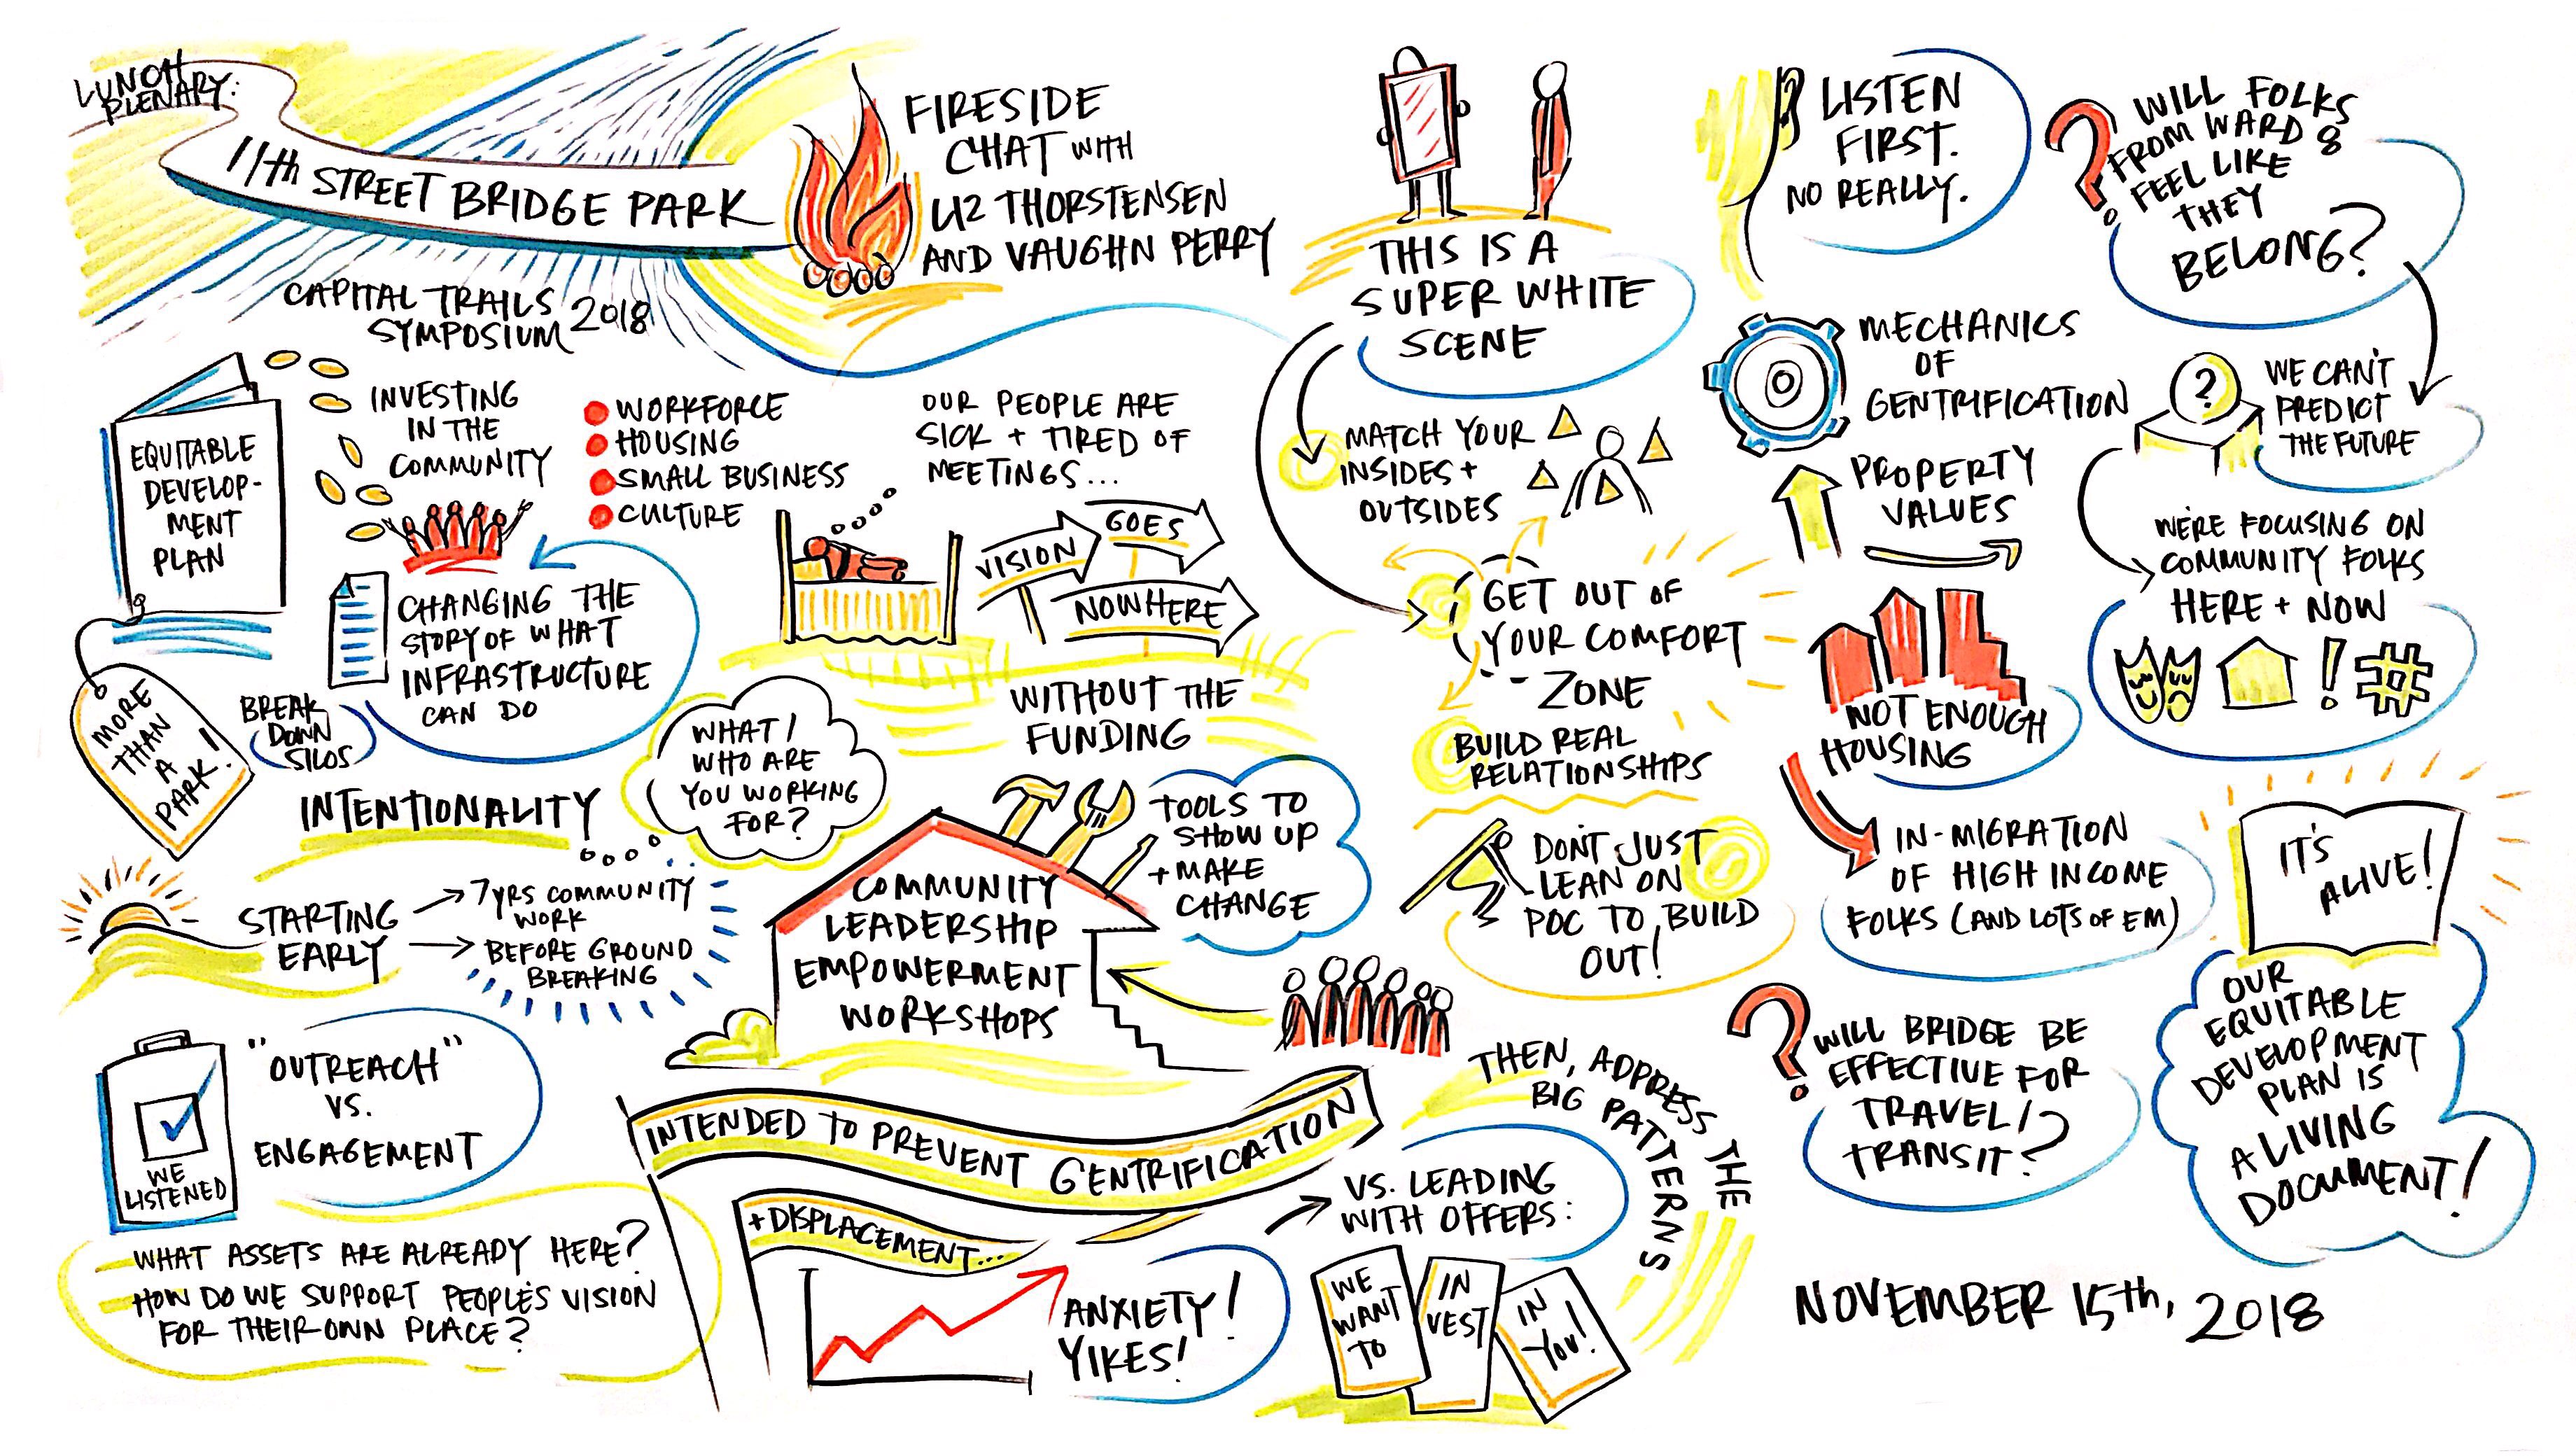 LUNCH
PLENARY:
11th STREET BRIDGE PARK
CAPITAL TRAILS
SYMPOSIUM 2018
FIRESIDE
CHAT WITH
LIZ THORSTENSEN
AND VAUGHN PERRY
EQUITABLE
DEVELOP-
MENT
PLAN
MORE
THAN
A
PARK!
INVESTING
IN THE
COMMUNITY
WORKFORCE
HOUSING
SMALL BUSINESS
CULTURE
CHANGING THE
STORY OF WHAT
INFRASTRUCTURE
CAN DO
BREAK
DOWN
SILOS
OUR PEOPLE ARE
SICK + TIRED OF
MEETINGS...
VISION
GOES
NOWHERE
WITHOUT THE
FUNDING
INTENTIONALITY
WHAT/
WHO ARE
YOU WORKING
FOR?
STARTING
EARLY
7 YRS COMMUNITY
WORK
BEFORE GROUND
BREAKING
"OUTREACH"
VS.
ENGAGEMENT
WE
LISTENED
WHAT ASSETS ARE ALREADY HERE?
HOW DO WE SUPPORT PEOPLE'S VISION
FOR THEIR OWN PLACE?
COMMUNITY
LEADERSHIP
EMPOWERMENT
WORKSHOPS
TOOLS TO
SHOW UP
+ MAKE
CHANGE
INTENDED TO PREVENT GENTRIFICATION
+ DISPLACEMENT...
ANXIETY!
YIKES!
THIS IS A
SUPER WHITE
SCENE
MATCH YOUR
INSIDES +
OUTSIDES
GET OUT OF
YOUR COMFORT
ZONE
BUILD REAL
RELATIONSHIPS
DON'T JUST
LEAN ON
POC TO BUILD
OUT!
THEN, ADDRESS THE
BIG PATTERNS
VS. LEADING
WITH OFFERS:
WE
WANT
TO
IN
VEST
IN
YOU!
LISTEN
FIRST.
NO REALLY.
MECHANICS
OF
GENTRIFICATION
PROPERTY
VALUES
NOT ENOUGH
HOUSING
IN-MIGRATION
OF HIGH INCOME
FOLKS (AND LOTS OF EM)
? WILL BRIDGE BE
EFFECTIVE FOR
TRAVEL/
TRANSIT?
? WILL FOLKS
FROM WARD 8
FEEL LIKE
THEY
BELONG?
?
WE CAN'T
PREDICT
THE FUTURE
WE'RE FOCUSING ON
COMMUNITY FOLKS
HERE + NOW
! #
IT'S
ALIVE!
OUR
EQUITABLE
DEVELOPMENT
PLAN IS
A LIVING
DOCUMENT!
NOVEMBER 15th, 2018